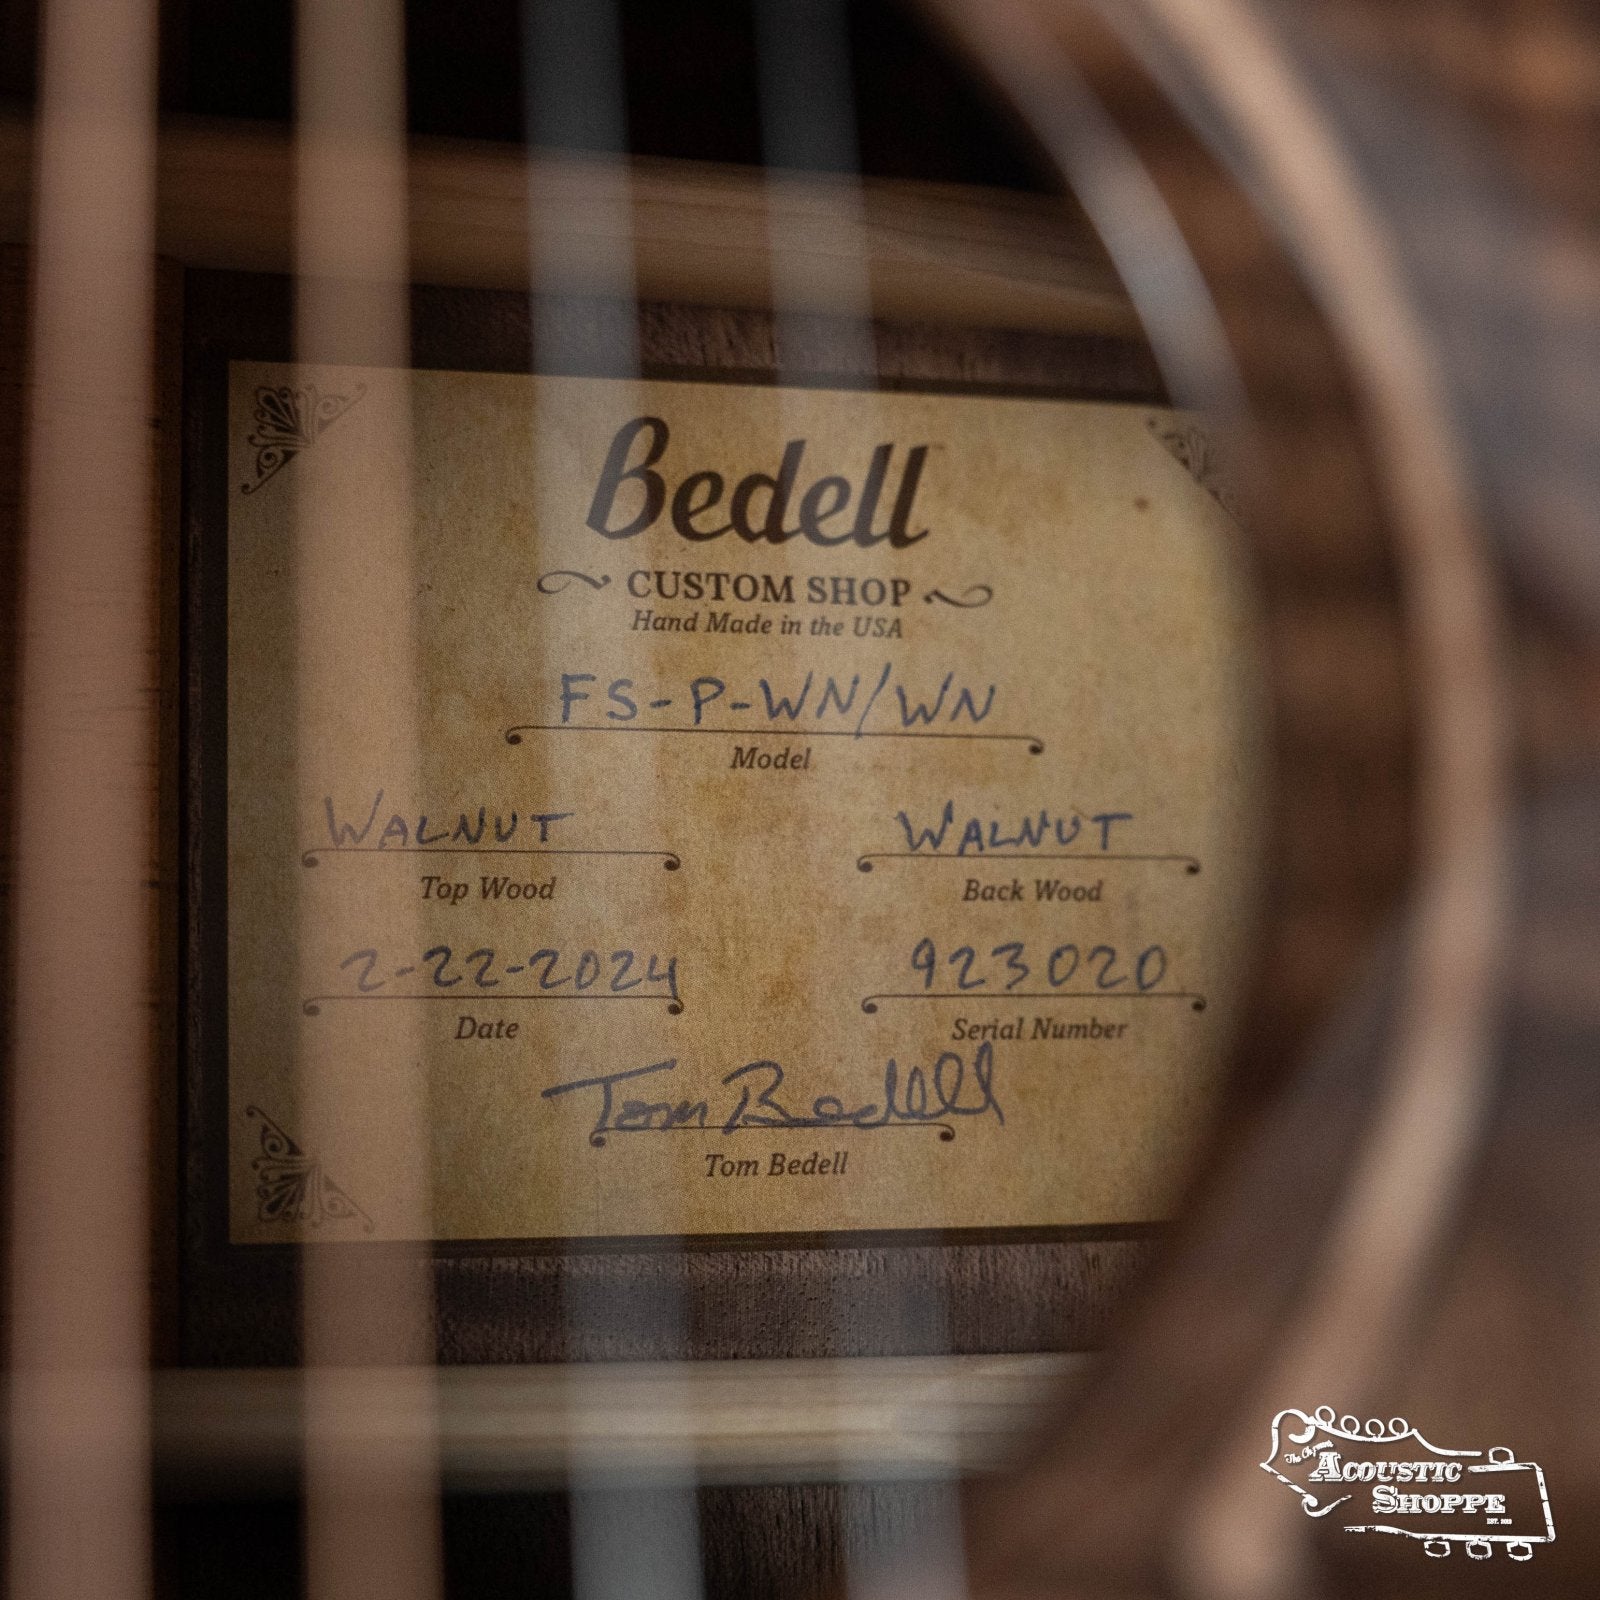 Bedell
CUSTOM SHOP
Hand Made in the USA
FS-P-WN/WN
Model
WALNUT WALNUT
Top Wood Back Wood
2-22-2024 923020
Date Serial Number
Tom Bedell
Tom Bedell
ACOUSTIC
SHOPPE